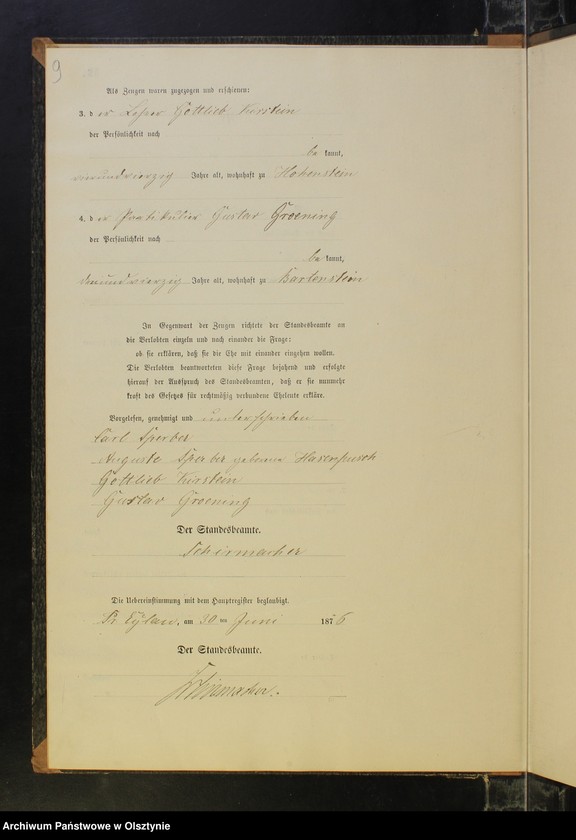 9
Als Zeugen waren zugezogen und erschienen:
3. d er Gottlieb Kirstein
der Persönlichkeit nach
be kannt,
vierundvierzig Jahre alt, wohnhaft zu Hohenstein
4. d er Gustav Groening
der Persönlichkeit nach
be kannt,
dreiundvierzig Jahre alt, wohnhaft zu Bartenstein
In Gegenwart der Zeugen richtete der Standesbeamte an
die Verlobten einzeln und nach einander die Frage:
ob sie erklären, daß sie die Ehe mit einander eingehen wollen.
Die Verlobten beantworteten diese Frage bejahend und erfolgte
hierauf der Ausspruch des Standesbeamten, daß er sie nunmehr
kraft des Gesetzes für rechtmäßig verbundene Eheleute erkläre.
Vorgelesen, genehmigt und unterschrieben
Carl Sperber
Auguste Sperber geborene Hasenpusch
Gottlieb Kirstein
Gustav Groening
Der Standesbeamte.
Schirrmacher
Die Uebereinstimmung mit dem Hauptregister beglaubigt.
Pr. Eylau, am 30 ten Juni 1876
Der Standesbeamte.
Schirrmacher.
Archiwum Państwowe w Olsztynie